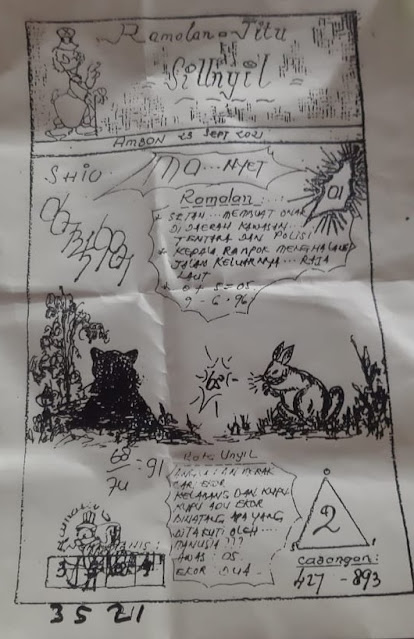 Ramalan Jitu
Si Unyil
AMBON 23 SEPT 2021
SHIO
MO...NYET
01
Ramalan :
+ SETAN... MEMBUAT ONAR
DI DAERAH KAWASAN...
TENTARA DAN POLISI
+ KEPALA RAMPOK MENGHALANG
JALAN KELUARNYA... RAJA
LAUT
+ 0 + 5 = 05
9 - 6 . 96
68
68/74 = 91
Kata Unyil
CARI EKOR
KELABANG DAN KUPU
KUPU ADU EKOR
BINATANG APA YANG
DITAKUTI OLEH...
MANUSIA ???
AWAS : 05
EKOR : DUA
0
2
5
1
Cabangan :
427 - 893
3 5 2 1